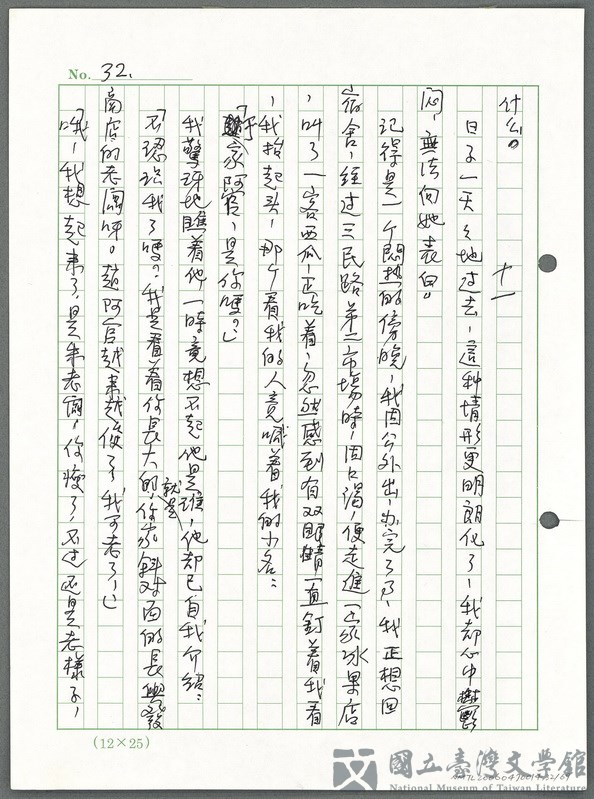 No. 32.
什么。
十一
日子一天々地过去,這种情形更明朗化了,我却心中
悶,無法向她表白。
记得是一个悶热的傍晚,我因公外出,办完了事,我正想回
宿舍,经过三民路第二市場時,因口渴,便走進一家冰果店
,叫了一客西瓜,正吃着,忽然感到有双眼睛一直釘着我看
,我抬起头,那个看我的人竟喊着我的小名:
家阿官,是你嗎?」
我驚訝地瞧着他一時竟想不起他是誰,他却已自我介紹:
「不認识我了嗎?我是看着你長大的,就是你家斜对面的長興發
商店的老闆呀。趙阿官越来越俊了,我可老了,」
「哦!我想起来了,是朱老闆,你瘦了,不过还是老樣子,
(12×25)
國立臺灣文學館
National Museum of Taiwan Literature